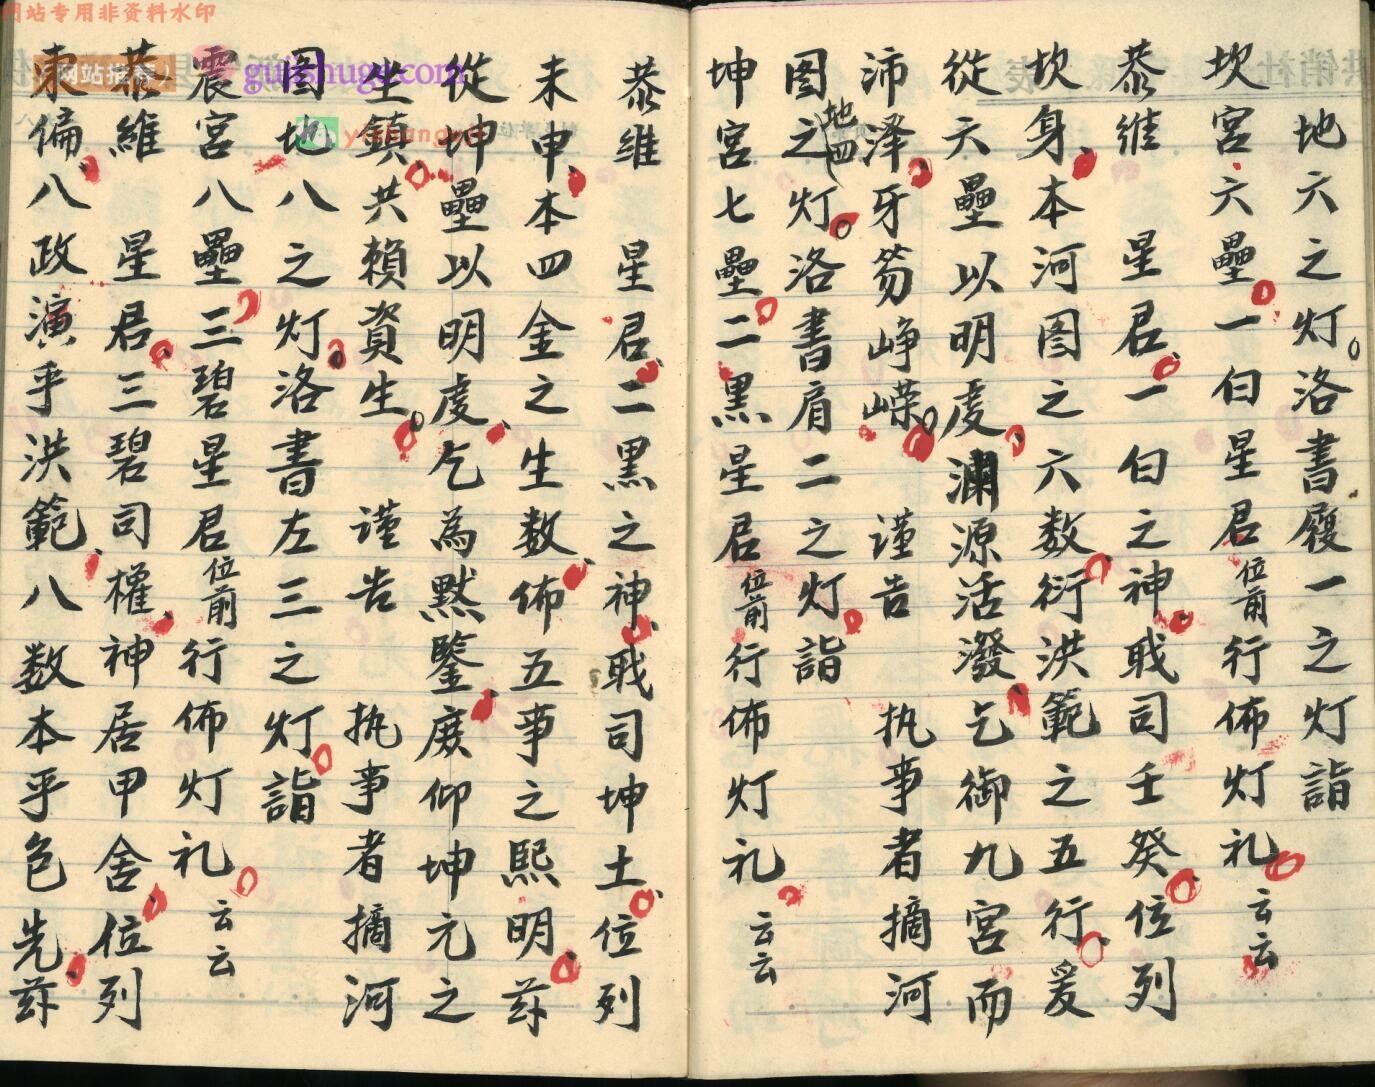 网站专用非资料水印
地六之灯洛書履一之灯詣
坎宮六壘一白星君位前行佈灯礼云云
恭維 星君一白之神戢司壬癸位列
坎身本河图之六数衍洪範之五行爰
從六壘以明虔瀾源活潑乞御九宮而
沛泽牙笏峥嵘 谨告 执事者摘河
图之地四灯洛書肩二之灯詣
坤宮七壘二黑星君位前行佈灯礼云云
恭维 星君二黑之神戢司坤土位列
未申本四金之生数佈五事之熙明茲
從坤壘以明虔乞為默鑒庶仰坤元之
坐鎮共賴資生 谨告 执事者摘河
图地八之灯洛書左三之灯詣
震宮八壘三碧星君位前行佈灯礼云云
恭維 星君三碧司權神居甲舍位列
東偏八政演乎洪範八数本乎色先茲
网站推荐
gujishuge.com